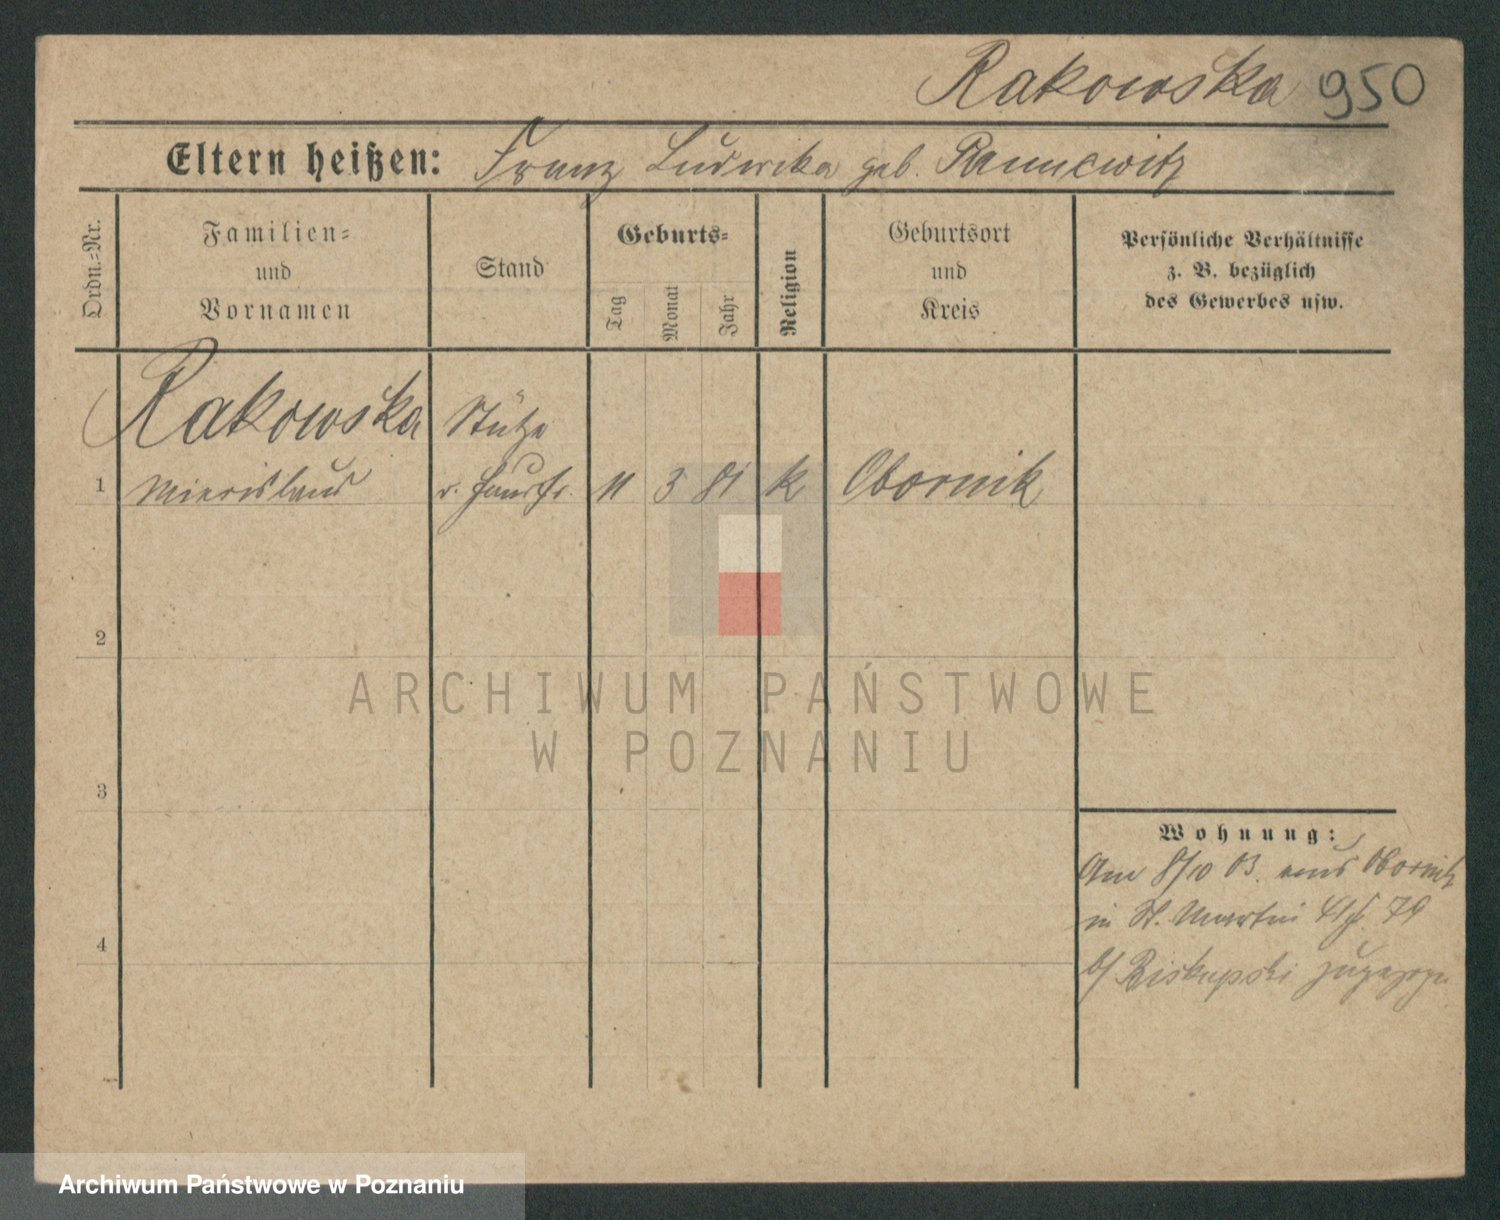 Rakowska 950
Eltern heißen: Franz Ludwika geb. Pannewitz
Ordn.-Nr.
Familien-
und
Vornamen
Stand
Geburts-
Tag
Monat
Jahr
Religion
Geburtsort
und
Kreis
Persönliche Verhältnisse
z. B. bezüglich
des Gewerbes usw.
Rakowska Stütze
1 d. Hausfr. 11 3 81 k Obornik
2
3
4
Wohnung:
Am 8/10 03. aus Obornik
in St. Martin 79
b/ Biskupski zugezogen
ARCHIWUM PAŃSTWOWE
W POZNANIU
Archiwum Państwowe w Poznaniu